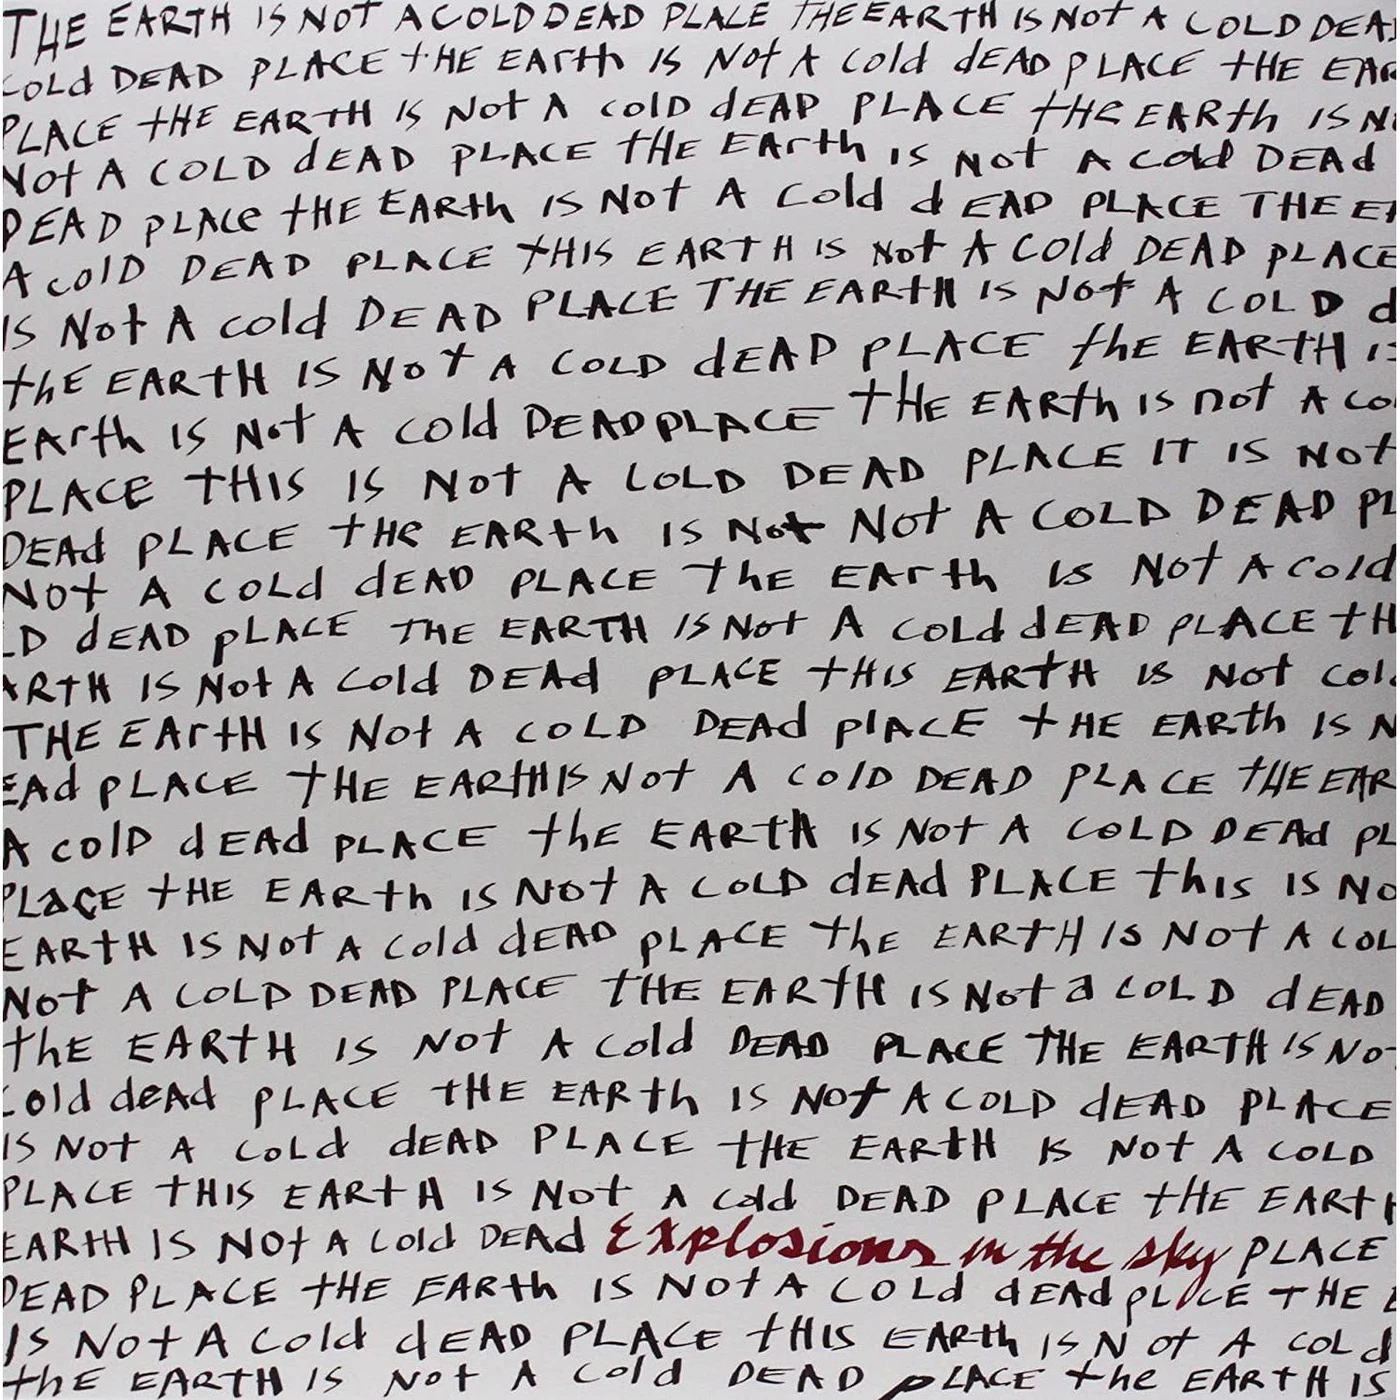 THE EARTH IS NOT A COLD DEAD PLACE THE EARTH IS NOT A COLD DEA
COLd DEAD PLACE tHE EArth IS Not A cold dEAD PLACE tHE EAR
PLACE tHE EARtH IS Not A cold dEAD PLACE tHe EARth IS N
Not A COLD dEAD PLACE tHE EArth is Not A cold DEAd
DEAD pLACe tHE EARth IS Not A Cold dEAD PLACE THE EA
A colD DEAD PLACE tHIS EARTH IS Not A Cold DEAD pLACE
IS Not A cold DEAD PLACE THE EARtH IS Not A COLD d
thE EARtH IS NoT A COLD dEAD PLACE thE EARtH IS
EArth IS Not A cold DEAD PLACE tHE EARth IS not A co
PLACE tHIS IS Not A COLD DEAD PLACE IT IS Not
DEAd pLACE tHe EARth IS Not Not A COLD DEAD PL
Not A COLd dEAD PLACE ThE EArth Is Not A Cold
LD dEAD pLACE THE EARTH IS Not A COLd dEAD PLACE tH
ARTH IS Not A Cold DEAd pLACE tHIS EARtH IS Not Col
THE EArtH IS Not A COLD DEAd plACE tHE EARth IS N
EAd pLACE tHE EARtH IS Not A ColD DEAD PLACE tHE EAR
A colD dEAd pLACE the EARtH IS Not A COLD DEAd pL
PLaCE tHE EARth IS Not A COLD dEAd PLACE this IS No
EARtH IS Not A Cold dEAD pLACE the EARTH IS Not A COL
Not A COLD DEAD PLACE tHE EARtH IS Not a COLD dEAD
thE EARtH IS Not A Cold DEAD PLACE THE EARTH IS No
Cold deAd pLACE tHE EARth IS Not A COLD dEAD PLACE
IS Not A Cold dEAD PLACE tHE EARtH IS Not A COLD
PLACE tHIS EARtH IS Not A cold DEAD PLACE tHE EARtH
EARtH IS Not A Cold DEAd Explosions in the sky PLACE
DEAD PLACE tHE EARth IS Not A COLd dEAd pLaCE tHE E
IS Not A Cold dEAD PLACe tHIS EARth IS Not A COLd
thE EARTH IS Not A Cold DEAD pLACE the EARTH IS